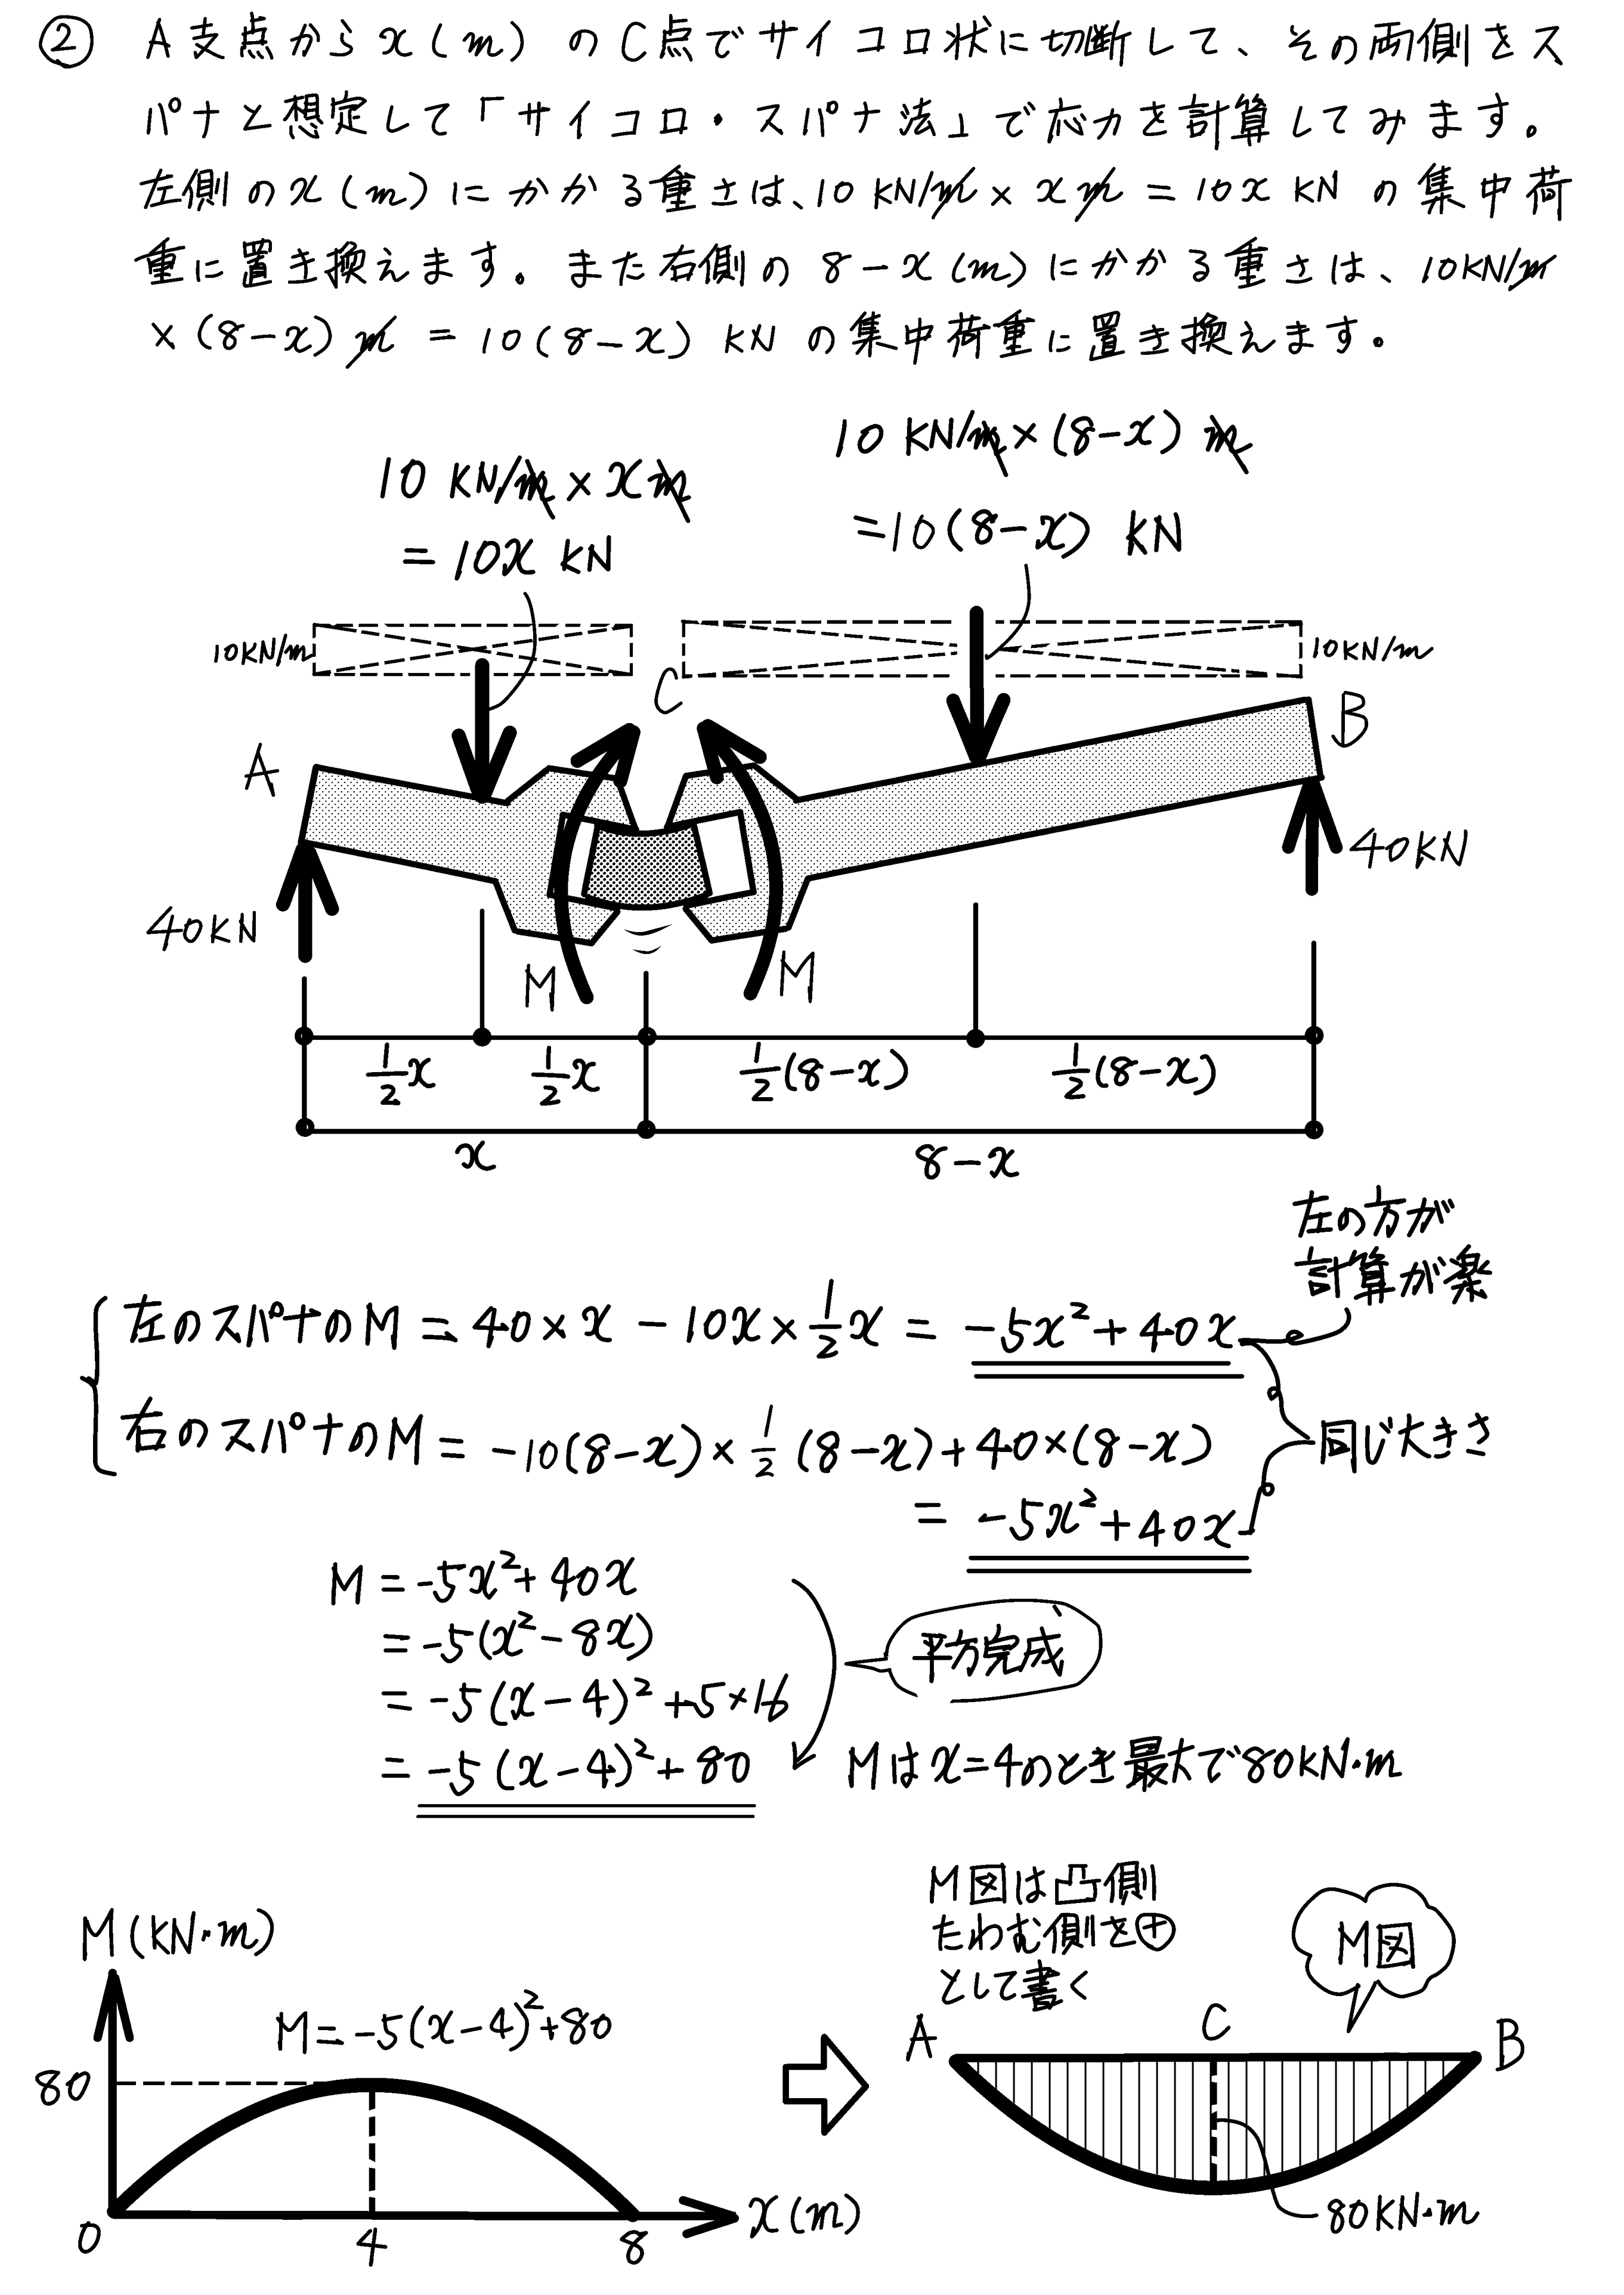 ② A支点からx(m)のC点でサイコロ状に切断して、その両側をス
パナと想定して「サイコロ・スパナ法」で応力を計算してみます。
左側のx(m)にかかる重さは、10 KN/m × x m = 10x KN の集中荷
重に置き換えます。また右側の 8-x (m)にかかる重さは、10KN/m
×(8-x) m = 10(8-x) KN の集中荷重に置き換えます。
10 KN/m×(8-x) m
=10(8-x) KN
10 KN/m × x m
= 10x KN
10KN/m
10KN/m
C
B
A
40KN
40KN
M
M
1/2 x
1/2 x
1/2 (8-x)
1/2 (8-x)
x
8-x
左の方が
計算が楽
左のスパナのM = 40×x - 10x×1/2 x = -5x²+40x
右のスパナのM = -10(8-x)×1/2 (8-x)+40×(8-x)
同じ大きさ
= -5x²+40x
M = -5x²+40x
= -5(x²-8x)
= -5(x-4)²+5×16
= -5(x-4)²+80
平方完成
Mはx=4のとき最大で80KN·m
M図は凸側
たわむ側を⊕
として書く
M図
M(KN·m)
M=-5(x-4)²+80
80
0
4
8
x(m)
A
C
B
80KN·m